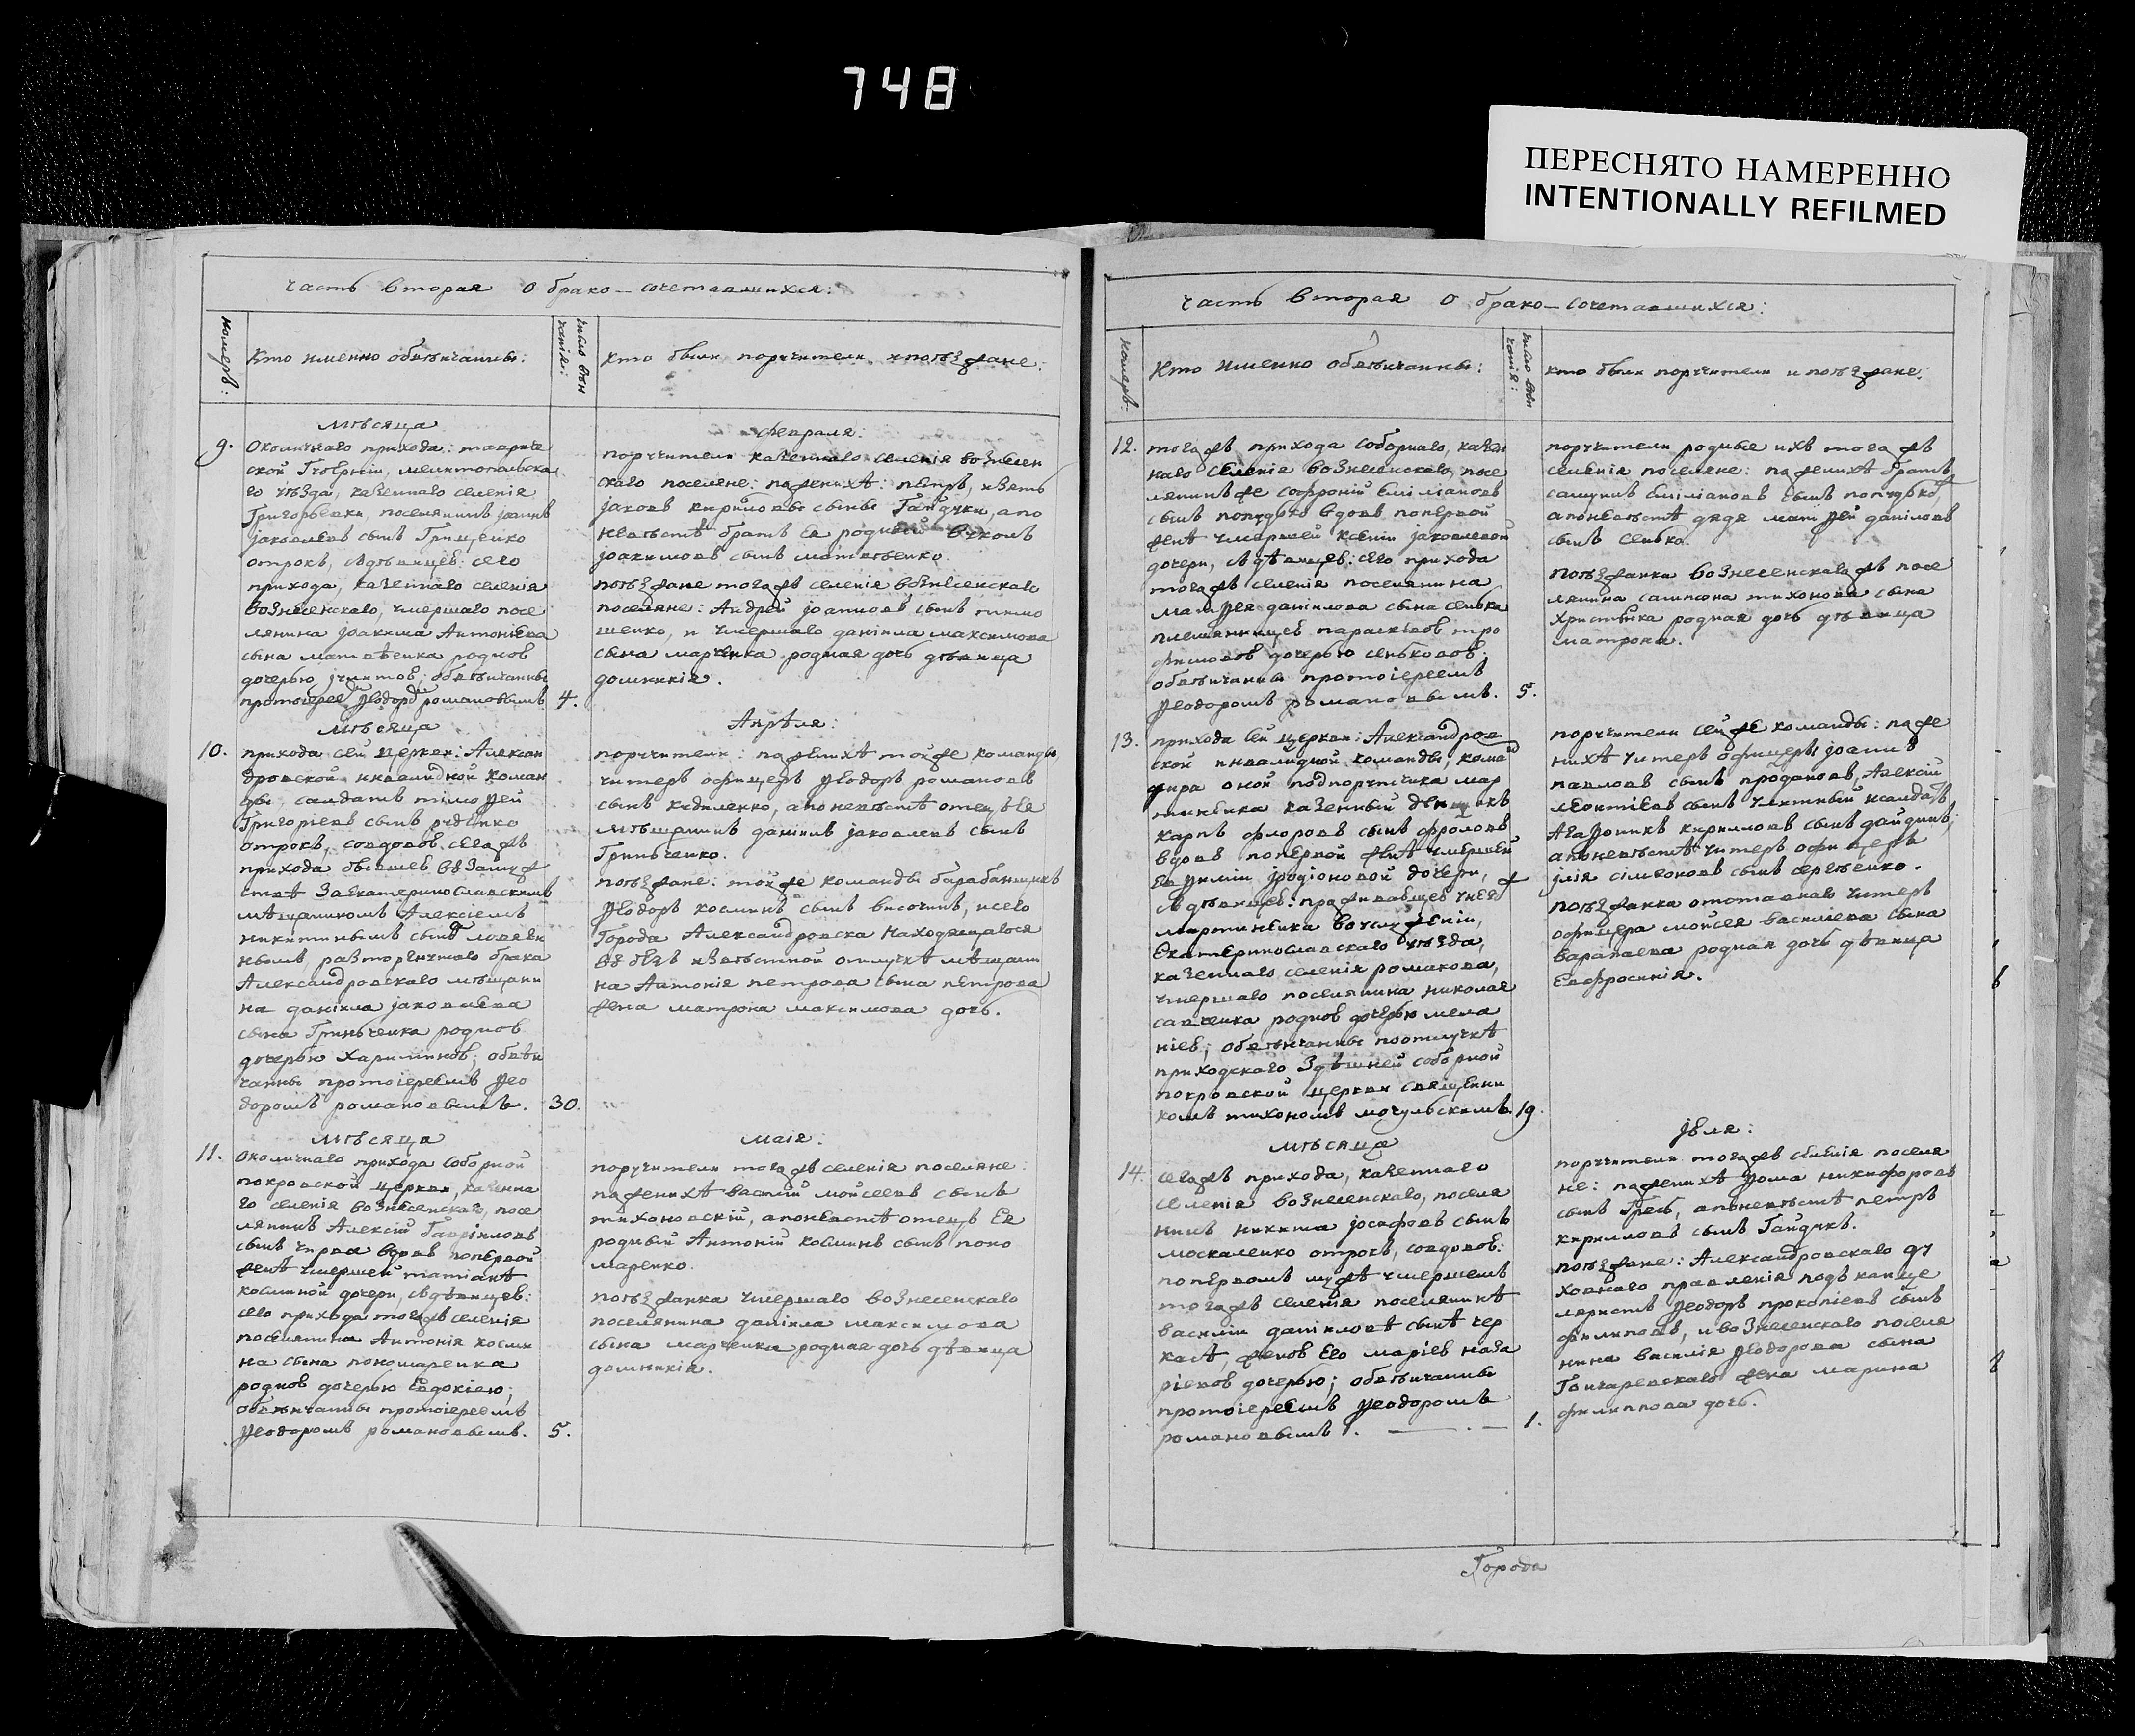 748
ПЕРЕСНЯТО НАМЕРЕННО
INTENTIONALLY REFILMED
часть вторая о брако-сочетавшихся:
номеръ:
Кто именно обвѣнчанны:
число вѣн
чанія:
кто были поручители и поѣзжане:
мѣсяца
февраля:
9.
Околичнаго прихода: тавриче
ской Губерніи, мелитопольска
го уѣзда, казеннаго селенія
Григорьевки, поселянинъ іоаннъ
іаковлевъ сынъ Грищенко
отрокъ, съ дѣвицею: сего
прихода, казеннаго селенія
вознесенскаго, умершаго посе
лянина іоакима Антоніева
сына матвѣенка родною
дочерью іулиттою; обвѣнчанны
протоіереемъ Ѳеодоромъ романовымъ
4.
поручители казеннаго селенія вознесен
скаго поселяне: по женихѣ: петръ, и зять
іаковъ кириловы сыны Гайдуки, а по
невѣстѣ братъ Ея родный
іоакимовъ сынъ матвѣенко.
поѣзжане тогожъ селенія вознесенскаго
поселяне: Андрей іоанновъ сынъ тимо
шенко, и умершаго даніила максимова
сына марченка родная дочь дѣвица
домникія.
мѣсяца
Апрѣля:
10.
прихода сей церкви: Алексан
дровской инвалидной коман
ды, салдатъ тімоѳей
Григоріевъ сынъ руденко
отрокъ, со вдовою сегожъ
прихода, бывшею въ замуж
ствѣ за Екатеринославскимъ
мѣщаниномъ Алексіемъ
никитинымъ сыномъ
нымъ, разторгнутаго брака
Александровскаго мѣщани
на даніила іаковлева
сына Гриньченка родною
дочерью Харитиною; обвѣн
чанны протоіереемъ Ѳео
доромъ романовымъ.
30.
поручители: по женихѣ той же команды
унтеръ офицеръ Ѳеодоръ романовъ
сынъ кудиленко, а по невѣстѣ отецъ Ея
мѣщанинъ даніилъ іаковлевъ сынъ
Гриньченко.
поѣзжане: той же команды барабанщикъ
Ѳеодоръ косминъ сынъ височинъ, и сего
Города Александровска находящагося
въ безъ извѣстной отлучкѣ мѣщани
на Антонія петрова сына петрова
жена матрона максимова дочь.
мѣсяца
маія:
11.
Околичнаго прихода Соборной
покровской церкви, казенна
го селенія вознесенскаго, посе
лянинъ Алексій Гавріиловъ
сынъ чирва вдовъ по первой
женѣ умершей татіанѣ
косминой дочери, съ дѣвицею:
сего прихода тогожъ селенія
поселянина Антонія косми
на сына пономаренка
родною дочерью Евдокіею;
обвѣнчанны протоіереемъ
Ѳеодоромъ романовымъ.
5.
поручители тогожъ селенія поселяне:
по женихѣ василій мойсеевъ сынъ
тихоновскій, а по невѣстѣ отецъ Ея
родный Антоній косминъ сынъ поно
маренко.
поѣзжанка умершаго вознесенскаго
поселянина даніила максимова
сына марченка родная дочь дѣвица
домникія.
часть вторая о брако-сочетавшихся:
номеръ:
Кто именно обвѣнчанны:
число вѣн
чанія:
кто были поручители и поѣзжане:
12.
тогожъ прихода Соборнаго, казен
наго селенія вознесенскаго, посе
лянинъ же софроній Еміліановъ
сынъ вдовъ по первой
женѣ умершей Ксеніи іаковлевой
дочери, съ дѣвицею: сего прихода
тогожъ селенія поселянина
матѳея даніилова сына сенька
племянницею параскевою тро
фимовою дочерью сеньковою;
обвѣнчаны протоіереемъ
Ѳеодоромъ романовымъ.
5.
поручители родные ихъ тогожъ
селенія поселяне: по женихѣ братъ
самуилъ Еміліановъ сынъ
а по невѣстѣ дядя матѳей даніиловъ
сынъ сенько.
поѣзжанка вознесенскагожъ посе
лянина сампсона тихонова сына
родная дочь дѣвица
матрона.
13.
прихода сей церкви: Александров
ской инвалидной команды, кома
дира оной подпоручика мар
тиневка казенный денщикъ
карпъ флоровъ сынъ фроловъ
вдовъ по первой женѣ умершей
Евѳиміи іродіоновой дочери,
съ дѣвицею: проживавшею у него
мартиневка во услуженіи,
Екатеринославскаго уѣзда,
казеннаго селенія романова,
умершаго поселянина николая
савченка родною дочерью мела
ніею; обвѣнчанны по отлучкѣ
приходскаго здѣшней соборной
покровской церкви священни
комъ тихономъ мочульскимъ.
19.
поручители сей же команды: по же
нихѣ унтеръ офицеры іоаннъ
павловъ сынъ продановъ, Алексій
леонтіевъ сынъ и салдатъ
Агаѳоникъ кирилловъ сынъ
а по невѣстѣ унтеръ офицеръ
ілія сімеоновъ сынъ
поѣзжанка отставнаго унтеръ
офицера мойсея василіева сына
варапаева родная дочь дѣвица
Евфросинія.
мѣсяца
іюля:
14.
сегожъ прихода, казеннаго
селенія вознесенскаго, поселя
нинъ никита іосифовъ сынъ
москаленко отрокъ, со вдовою:
по первомъ мужѣ умершемъ
тогожъ селенія поселянинѣ
василіи даніиловѣ сынѣ чер
касѣ, женою Его маріею наза
ріевою дочерью; обвѣнчанны
протоіереемъ Ѳеодоромъ
романовымъ.
1.
поручители тогожъ селенія поселя
не: по женихѣ Ѳома никифоровъ
сынъ Гребъ, а по невѣстѣ петръ
кирилловъ сынъ Гайдукъ.
поѣзжане: Александровскаго ду
ховнаго правленія подъ канце
ляристъ Ѳеодоръ прокопіевъ сынъ
филиповъ, и вознесенскаго поселя
нина василія Ѳеодорова сына
Гончаревскаго жена марина
филиппова дочь.
Города